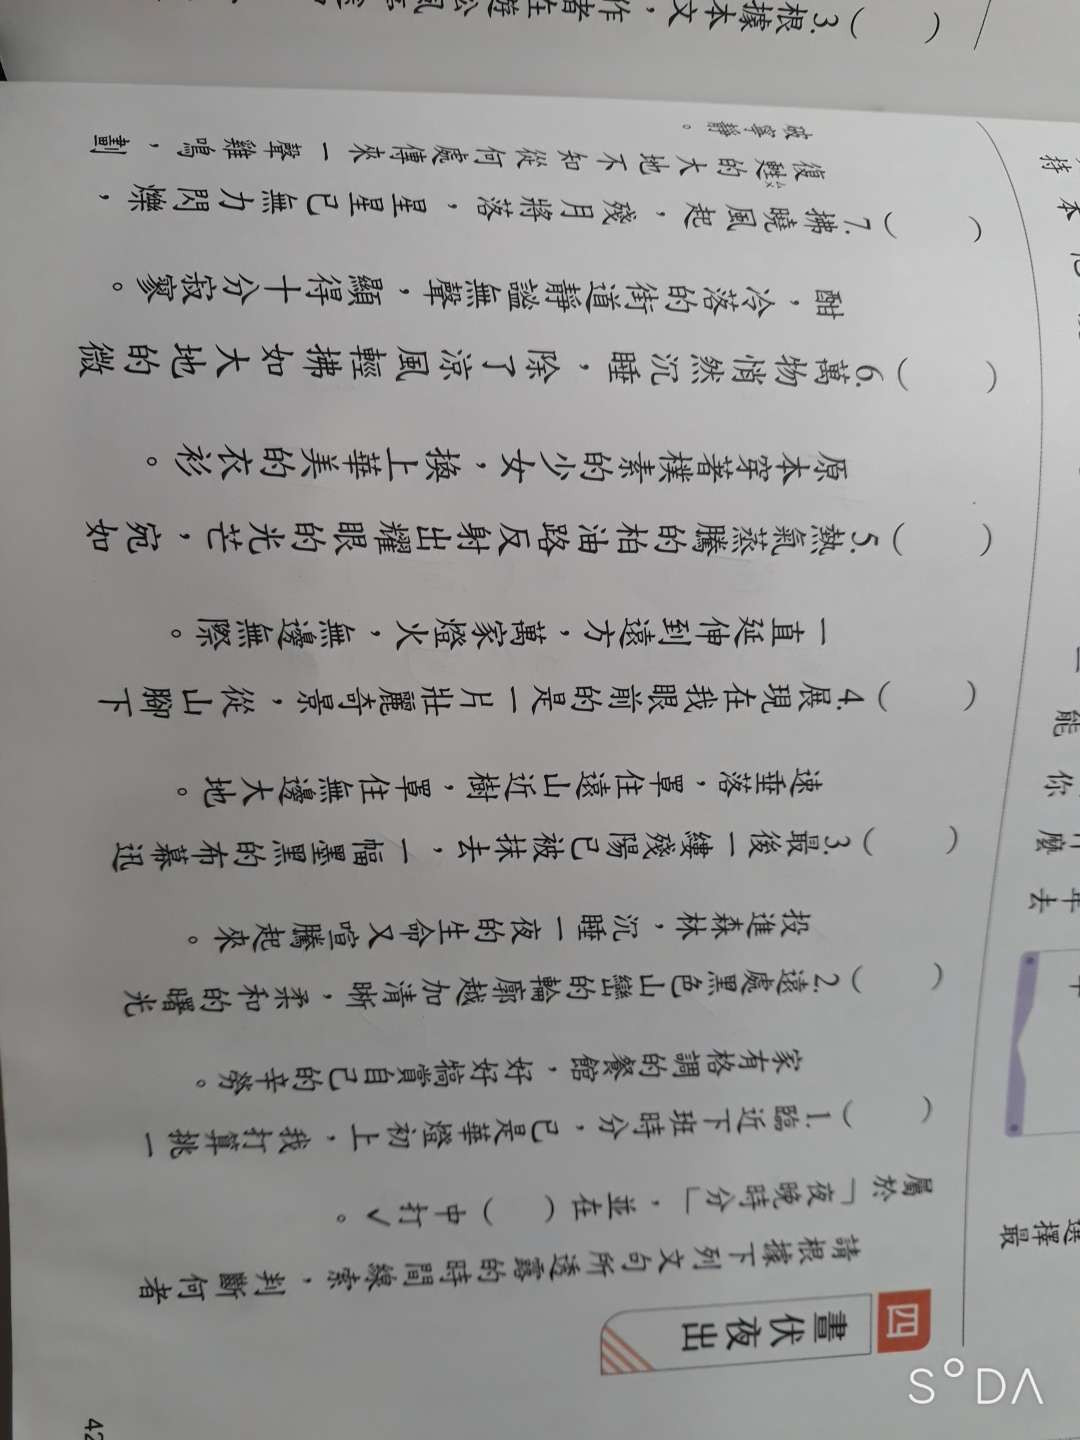 四 晝伏夜出
請根據下列文句所透露的時間線索，判斷何者
屬於「夜晚時分」，並在（ ）中打✓。
（ ）1.臨近下班時分，已是華燈初上，我打算挑一
家有格調的餐館，好好犒賞自己的辛勞。
（ ）2.遠處黑色山巒的輪廓越加清晰，柔和的曙光
投進森林，沉睡一夜的生命又喧騰起來。
（ ）3.最後一縷殘陽已被抹去，一幅墨黑的布幕迅
速垂落，罩住遠山近樹，罩住無邊大地。
（ ）4.展現在我眼前的是一片壯麗奇景，從山腳下
一直延伸到遠方，萬家燈火，無邊無際。
（ ）5.熱氣蒸騰的柏油路反射出耀眼的光芒，宛如
原本穿著樸素的少女，換上華美的衣衫。
（ ）6.萬物悄然沉睡，除了涼風輕拂如大地的微
酣，冷落的街道靜謐無聲，顯得十分寂寥。
（ ）7.拂曉風起，殘月將落，星星已無力閃爍，
復甦的大地不知從何處傳來一聲雞鳴，劃
破寧靜。
42
（ ）3.根據本文，作者在遊公園
持
本
能
你
麼
去
選擇最
SODA